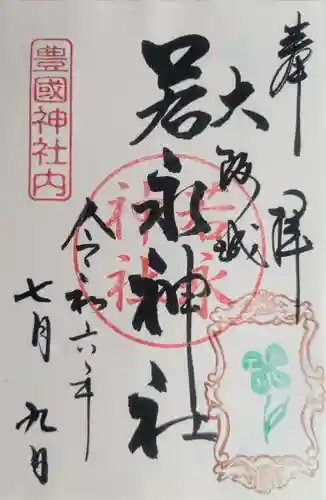 奉拝
大阪城
若永神社
若永
神社
令和六年
七月九日
豊國神社内